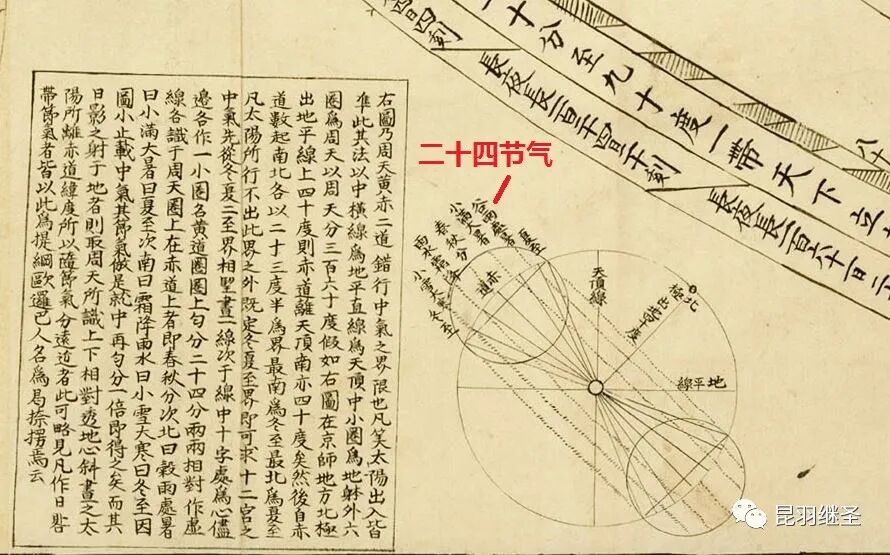 畧四刻
十分至九十度一帶天下立
長夜長一百十四日三十刻
長夜長一百六十日二
二十四节气
夏至
小滿大暑
穀雨處暑
春秋分
雨水霜降
小雪大寒
冬至
赤道
天頂線
北極出地四十度
地平線
右圖乃周天黃赤二道錯行中氣之界限也凡筭太陽出入皆
準此其法以中橫線爲地平直線爲天頂中小圈爲地躰外大
圈爲周天以周天分三百六十度假如右圖在京師地方北極
出地平線上四十度則赤道離天頂南亦四十度矣然後自赤
道數起南北各以二十三度半爲界最南爲冬至最北爲夏至
凡太陽所行不出此界之外既定冬夏至界即可求十二宮之
中氣先從冬夏二至界相望畫一線次于線中十字處爲心盡
邊各作一小圈名黃道圈圈上勻分二十四分兩兩相對作虛
線各識于周天圈上在赤道上者即春秋分次北曰穀雨處暑
曰小滿大暑曰夏至次南曰霜降雨水曰小雪大寒曰冬至因
圖小止載中氣其節氣倣是就中再勻分一倍即得之矣而其
日影之射于地者則取周天所識上下相對透地心斜畫之太
陽所離赤道緯度所以隨節氣分遠近者此可略見凡作日晷
帶節氣者皆以此爲提綱歐邏巴人名爲曷捺楞馬云
昆羽继圣